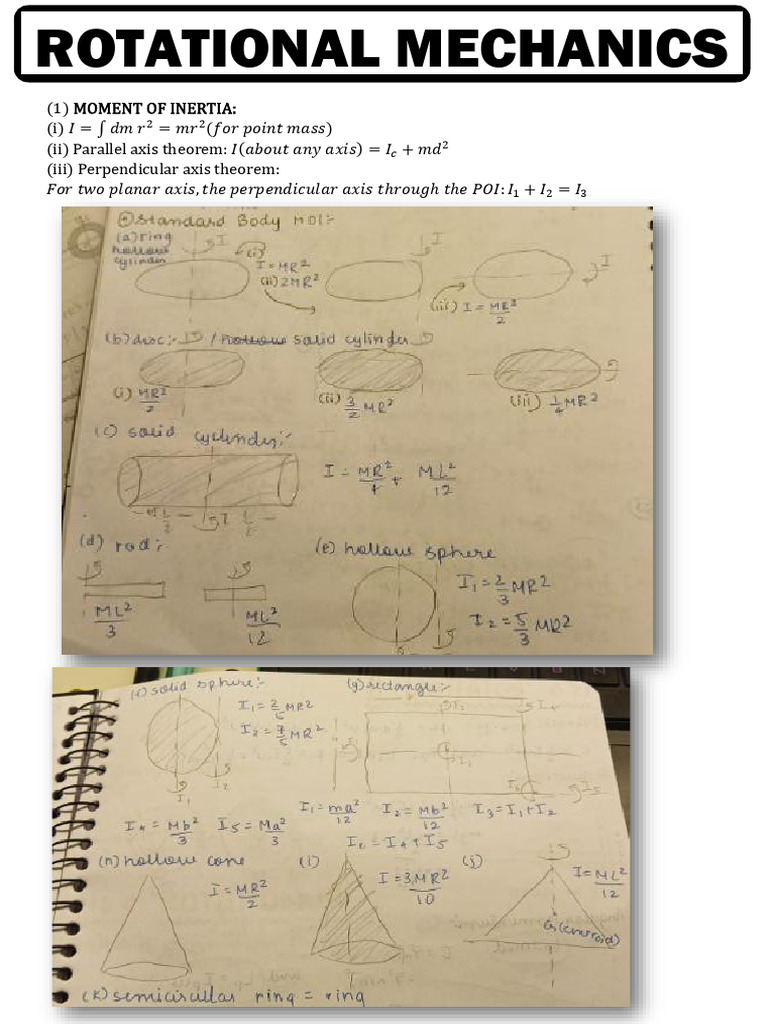 ROTATIONAL MECHANICS
(1) MOMENT OF INERTIA:
(i) I = ∫ dm r² = mr²(for point mass)
(ii) Parallel axis theorem: I(about any axis) = I_c + md²
(iii) Perpendicular axis theorem:
For two planar axis, the perpendicular axis through the POI: I₁ + I₂ = I₃
Standard Body MOI:-
(a) ring
hollow
cylinder
I
(i)
I = MR²
(ii) 2MR²
I
(iii) I = MR²/2
I
(b) disc:- / hollow solid cylinder
(i) MR²/2
(ii) 3/2 MR²
(iii) 1/4 MR²
(c) solid cylinder:-
I = MR²/4 + ML²/12
L/2 I L/2
(d) rod:-
ML²/3
ML²/12
(e) hollow sphere
I₁ = 2/3 MR²
I₂ = 5/3 MR²
solid sphere:-
I₁ = 2/5 MR²
I₂ = 7/5 MR²
I₁ I₂
(g) rectangle:-
I₁ = ma²/12 I₂ = Mb²/12 I₃ = I₁ + I₂
I₄ = Mb²/3 I₅ = Ma²/3
I₆ = I₄ + I₅
(h) hollow cone
I = MR²/2
(i)
I = 3MR²/10
(j)
I = ML²/12
G (centroid)
(k) semicircular ring = ring